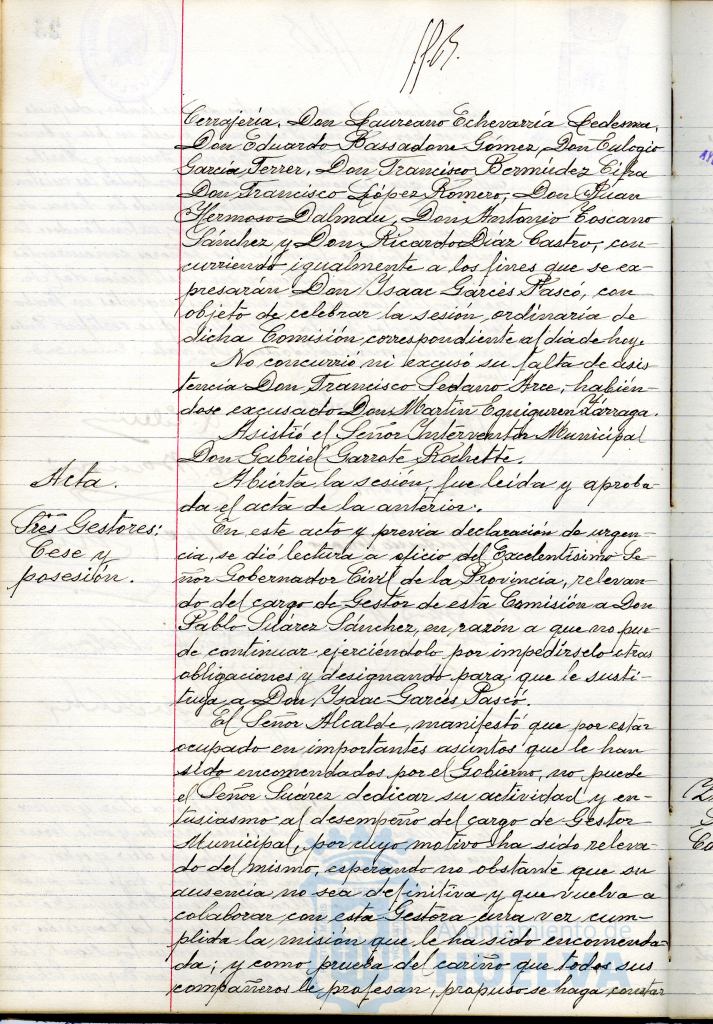 Cerrajería, Don Laureano Echevarría Ledesma,
Don Eduardo Bassadone Gómez, Don Eulogio
García Ferrer, Don Francisco Bermúdez Cifra
Don Francisco López Romero, Don Juan
Hermoso Dalmau, Don Antonio Toscano
Sánchez y Don Ricardo Díaz Castro, con-
curriendo igualmente a los fines que se ex-
presarán Don Isaac Garcés Pascó, con
objeto de celebrar la sesión, ordinaria de
dicha Comisión, correspondiente al día de hoy.
No concurrió ni excusó su falta de asis
tencia Don Francisco Sedano Arce, habién-
dose excusado Don Martín Eguiguren Zárraga.
Asistió el Señor Interventor Municipal
Don Gabriel Garrote Rochette.
Acta.
Abierta la sesión, fue leida y aproba-
da el acta de la anterior.
Tres Gestores:
Cese y
posesión.
En este acto y previa declaración de urgen-
cia, se dió lectura a oficio del Excelentísimo Se-
ñor Gobernador Civil de la Provincia, relevan-
do del cargo de Gestor de esta Comisión a Don
Pablo Suárez Sánchez, en razón a que no pue-
de continuar ejerciéndolo por impedírselo otras
obligaciones y designando para que le susti-
tuya a Don Isaac Garcés Pascó.
El Señor Alcalde, manifestó que por estar
ocupado en importantes asuntos que le han
sido encomendados por el Gobierno, no puede
el Señor Suárez dedicar su actividad y en-
tusiasmo al desempeño del cargo de Gestor
Municipal, por cuyo motivo ha sido releva-
do del mismo, esperando no obstante que su
ausencia no sea definitiva y que vuelva a
colaborar con esta Gestora una vez cum-
plida la misión que le ha sido encomenda-
da; y como prueba del cariño que todos sus
compañeros le profesan, propuso se haga constar
Ayuntamiento de
HUELVA